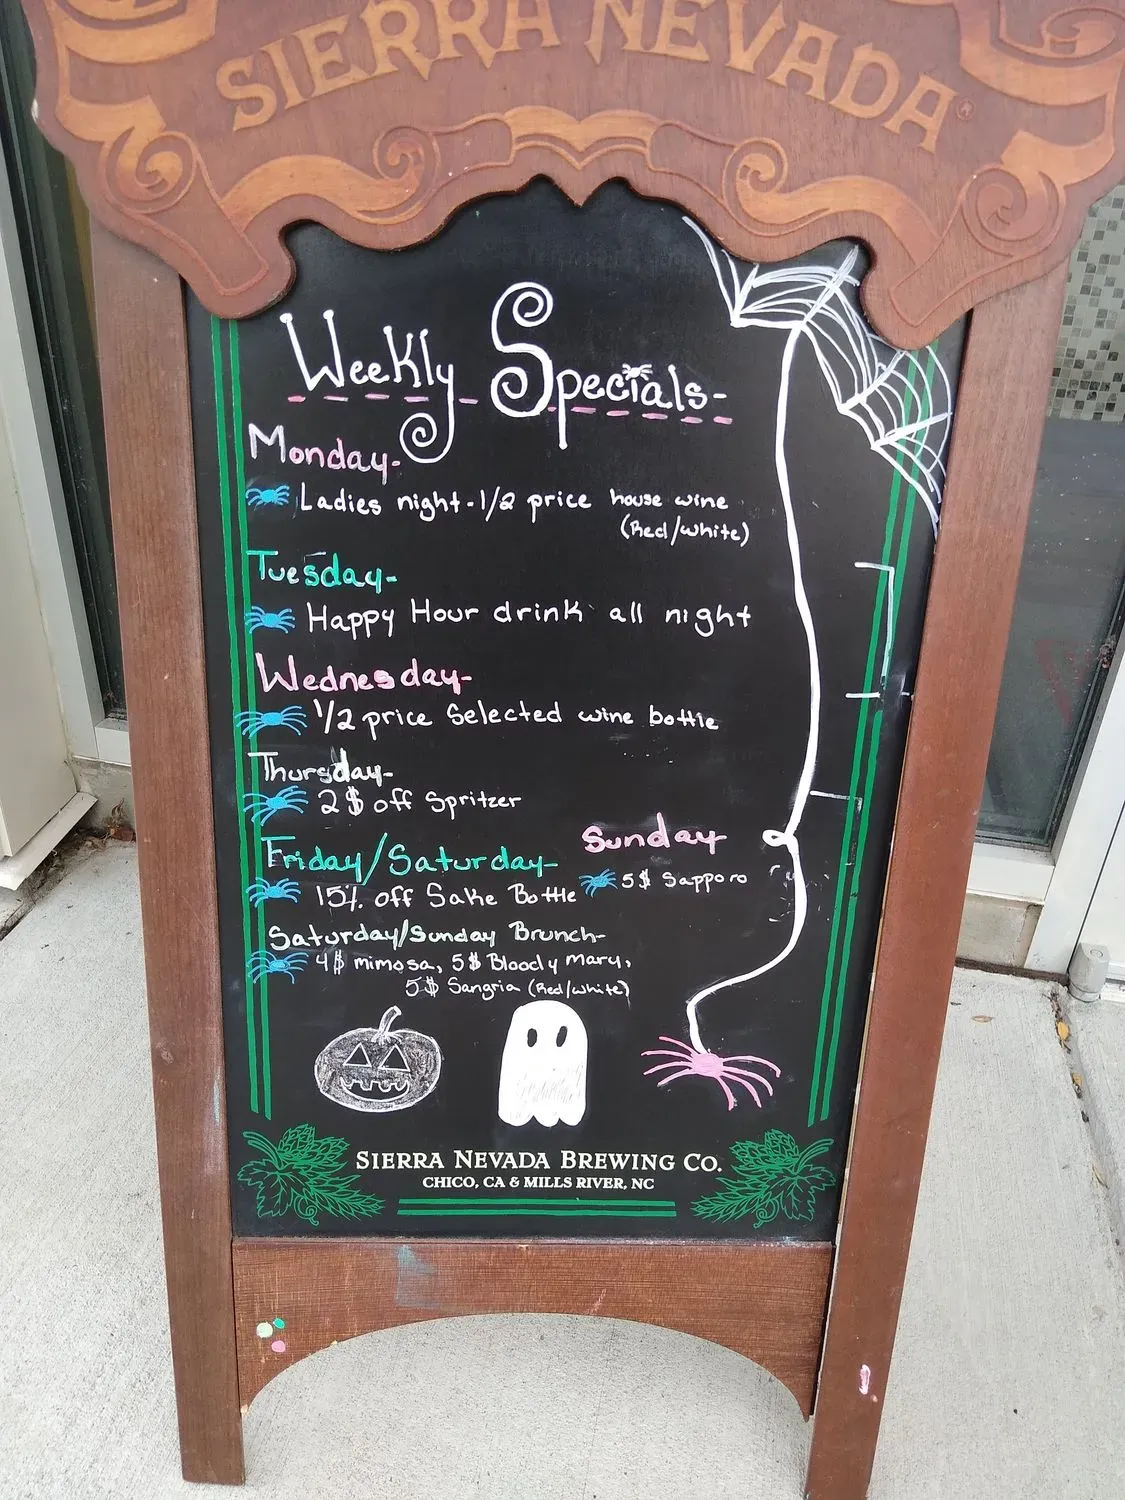 SIERRA NEVADA®
Weekly Specials-
Monday-
Ladies night-1/2 price house wine
(Red/white)
Tuesday-
Happy Hour drink all night
Wednesday-
1/2 price Selected wine bottle
Thursday-
2$ off Spritzer
Friday/Saturday-
15% off Sake Bottle
Sunday
5$ Sapporo
Saturday/Sunday Brunch-
4$ mimosa, 5$ Bloody mary,
5$ Sangria (Red/white)
SIERRA NEVADA BREWING CO.
CHICO, CA & MILLS RIVER, NC